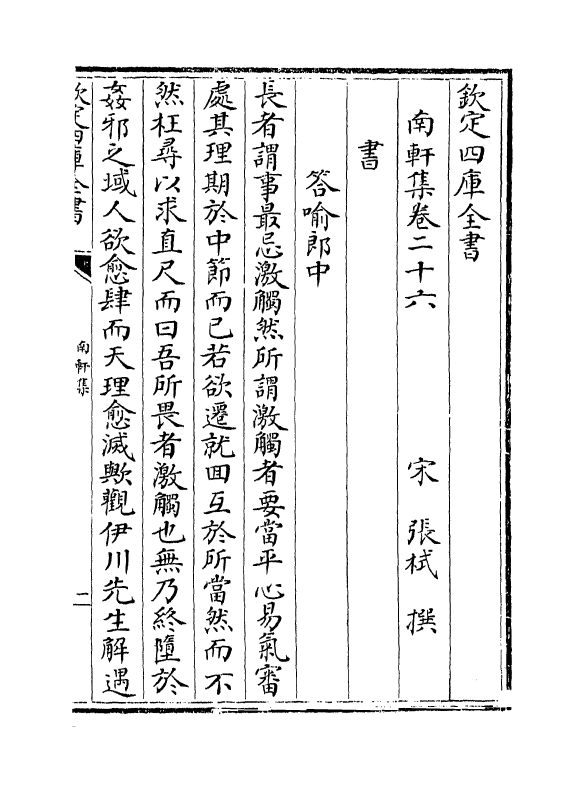 欽定四庫全書
南軒集卷二十六　　宋　張栻　撰
書
答喻郎中
長者謂事最忌激觸然所謂激觸者要當平心易氣審
處其理期於中節而已若欲遷就回互於所當然而不
然枉尋以求直尺而曰吾所畏者激觸也無乃終墮於
姦邪之域人欲愈肆而天理愈滅歟觀伊川先生解遇
欽定四庫全書
南軒集